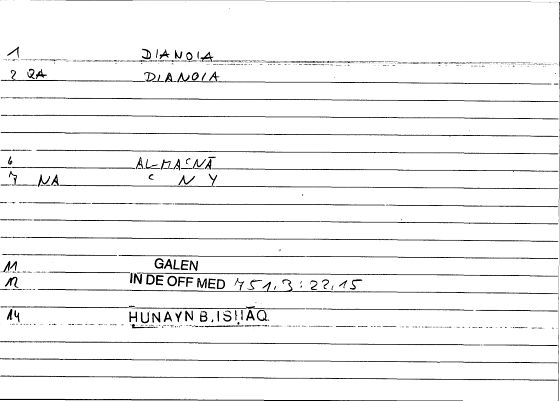 1 DIANOIA
2 QA DIANOIA
6 AL-MAʿNĀ
7 NA ʿ N Y
11 GALEN
12 IN DE OFF MED 751,3 : 22,15
14 ḤUNAYN B. ISḤĀQ